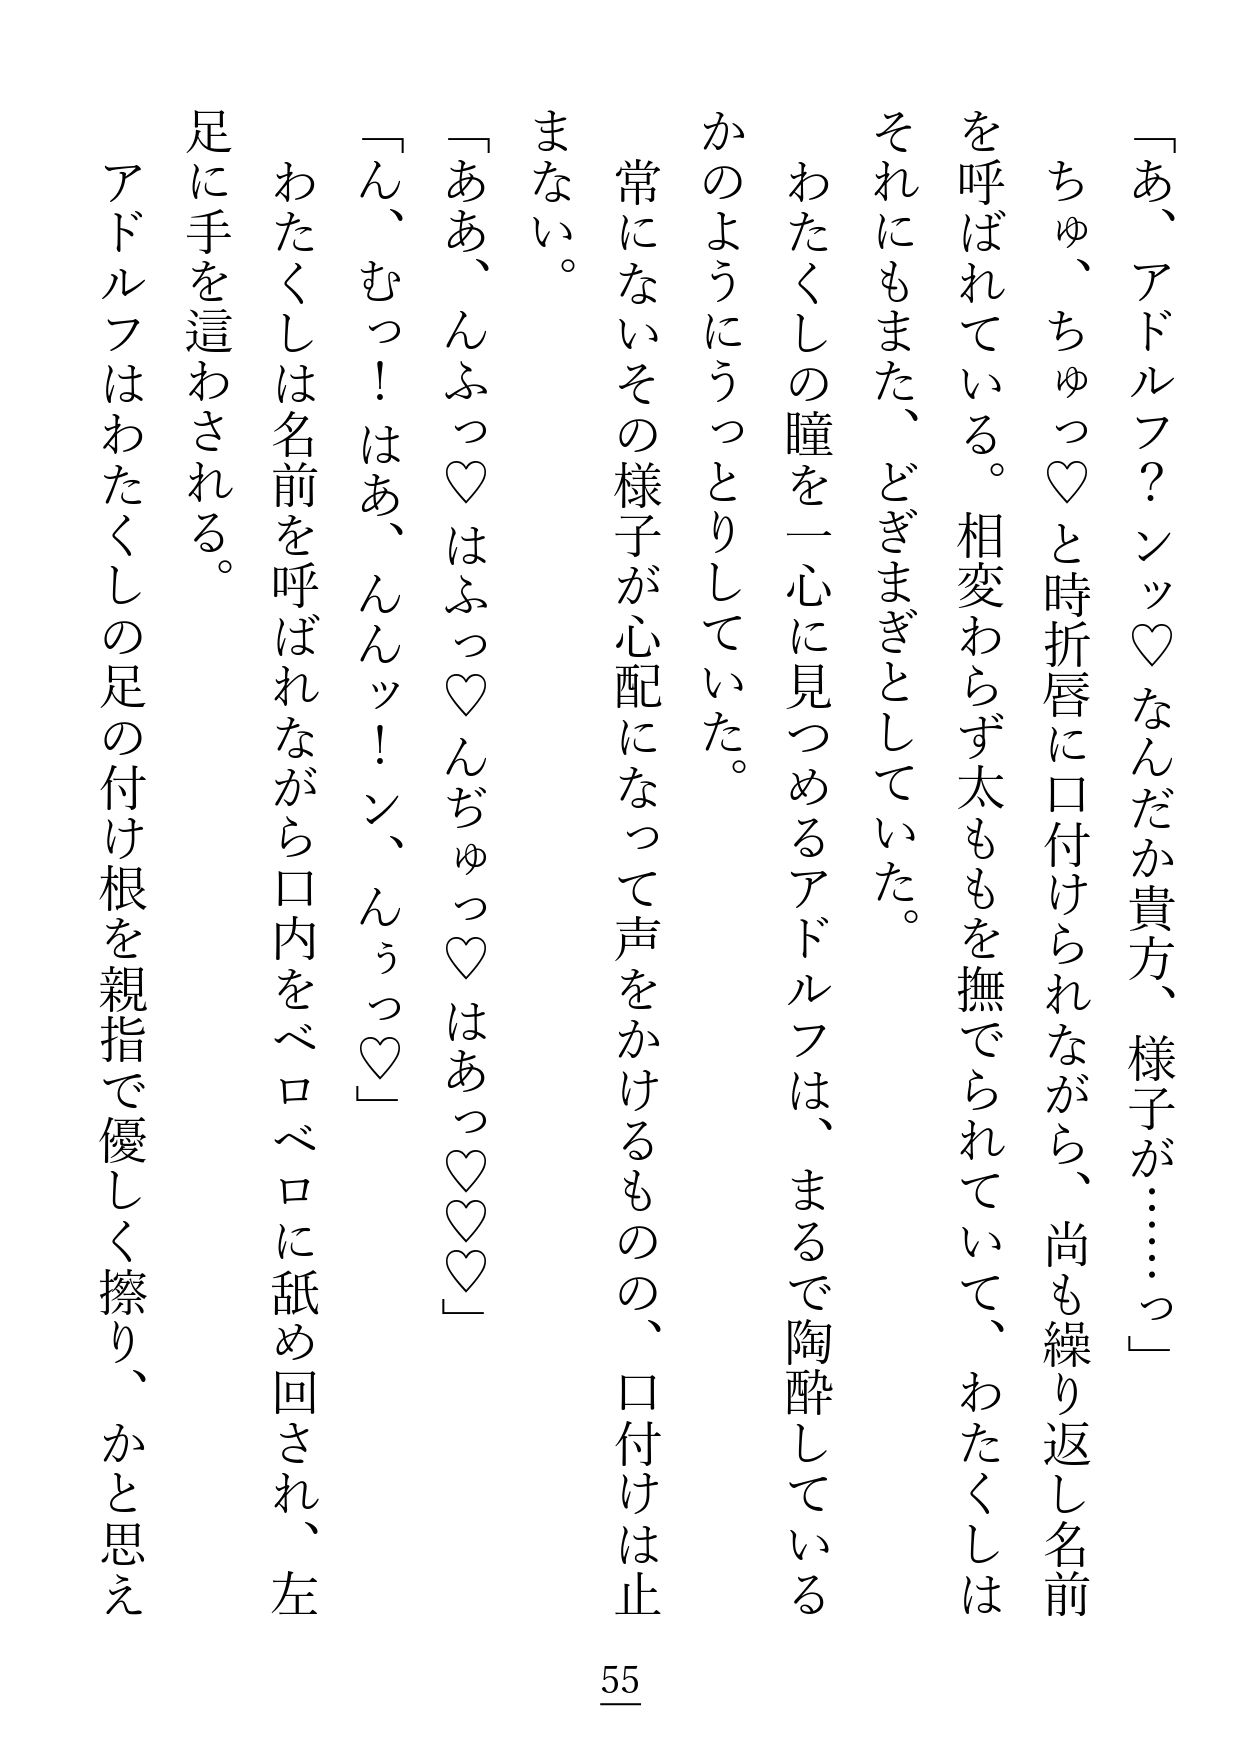 「あ、アドルフ？ ンッ♡ なんだか貴方、様子が……っ」
　ちゅ、ちゅっ♡ と時折唇に口付けられながら、尚も繰り返し名前
を呼ばれている。相変わらず太ももを撫でられていて、わたくしは
それにもまた、どぎまぎとしていた。
　わたくしの瞳を一心に見つめるアドルフは、まるで陶酔している
かのようにうっとりしていた。
　常にないその様子が心配になって声をかけるものの、口付けは止
まない。
「ああ、んふっ♡ はふっ♡ んぢゅっ♡ はあっ♡♡♡」
「ん、むっ！ はあ、んんッ！ ン、んぅっ♡」
　わたくしは名前を呼ばれながら口内をベロベロに舐め回され、左
足に手を這わされる。
　アドルフはわたくしの足の付け根を親指で優しく擦り、かと思え
55